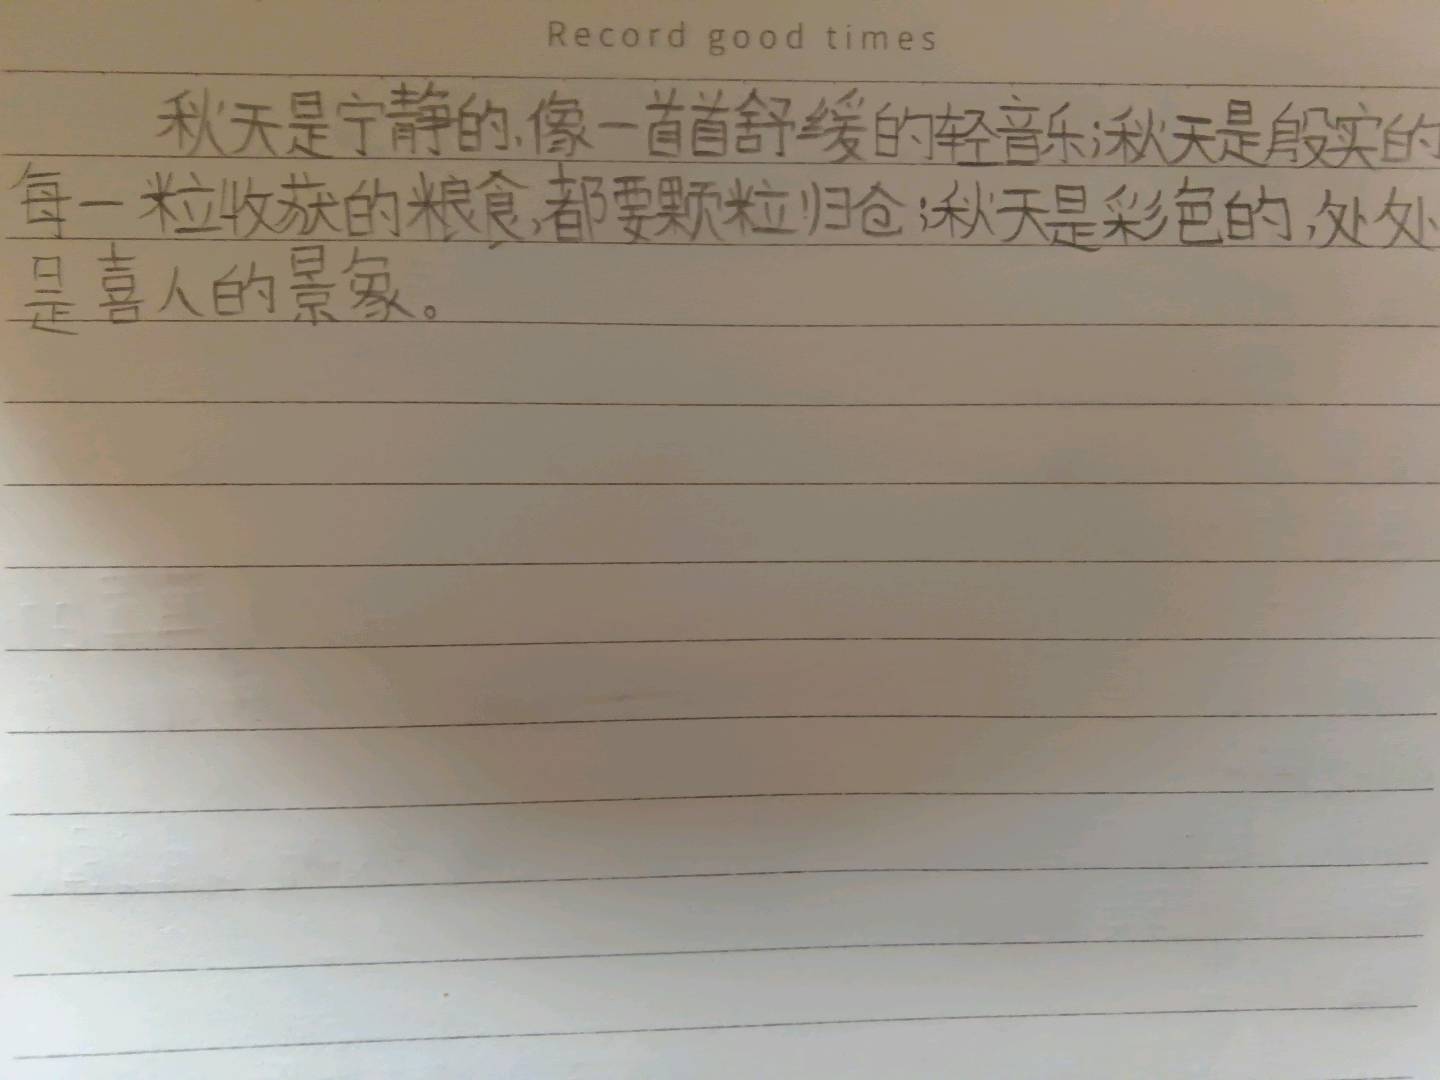 Record good times
秋天是宁静的,像一首首舒缓的轻音乐;秋天是殷实的
每一粒收获的粮食,都要颗粒归仓;秋天是彩色的,处处
是喜人的景象。